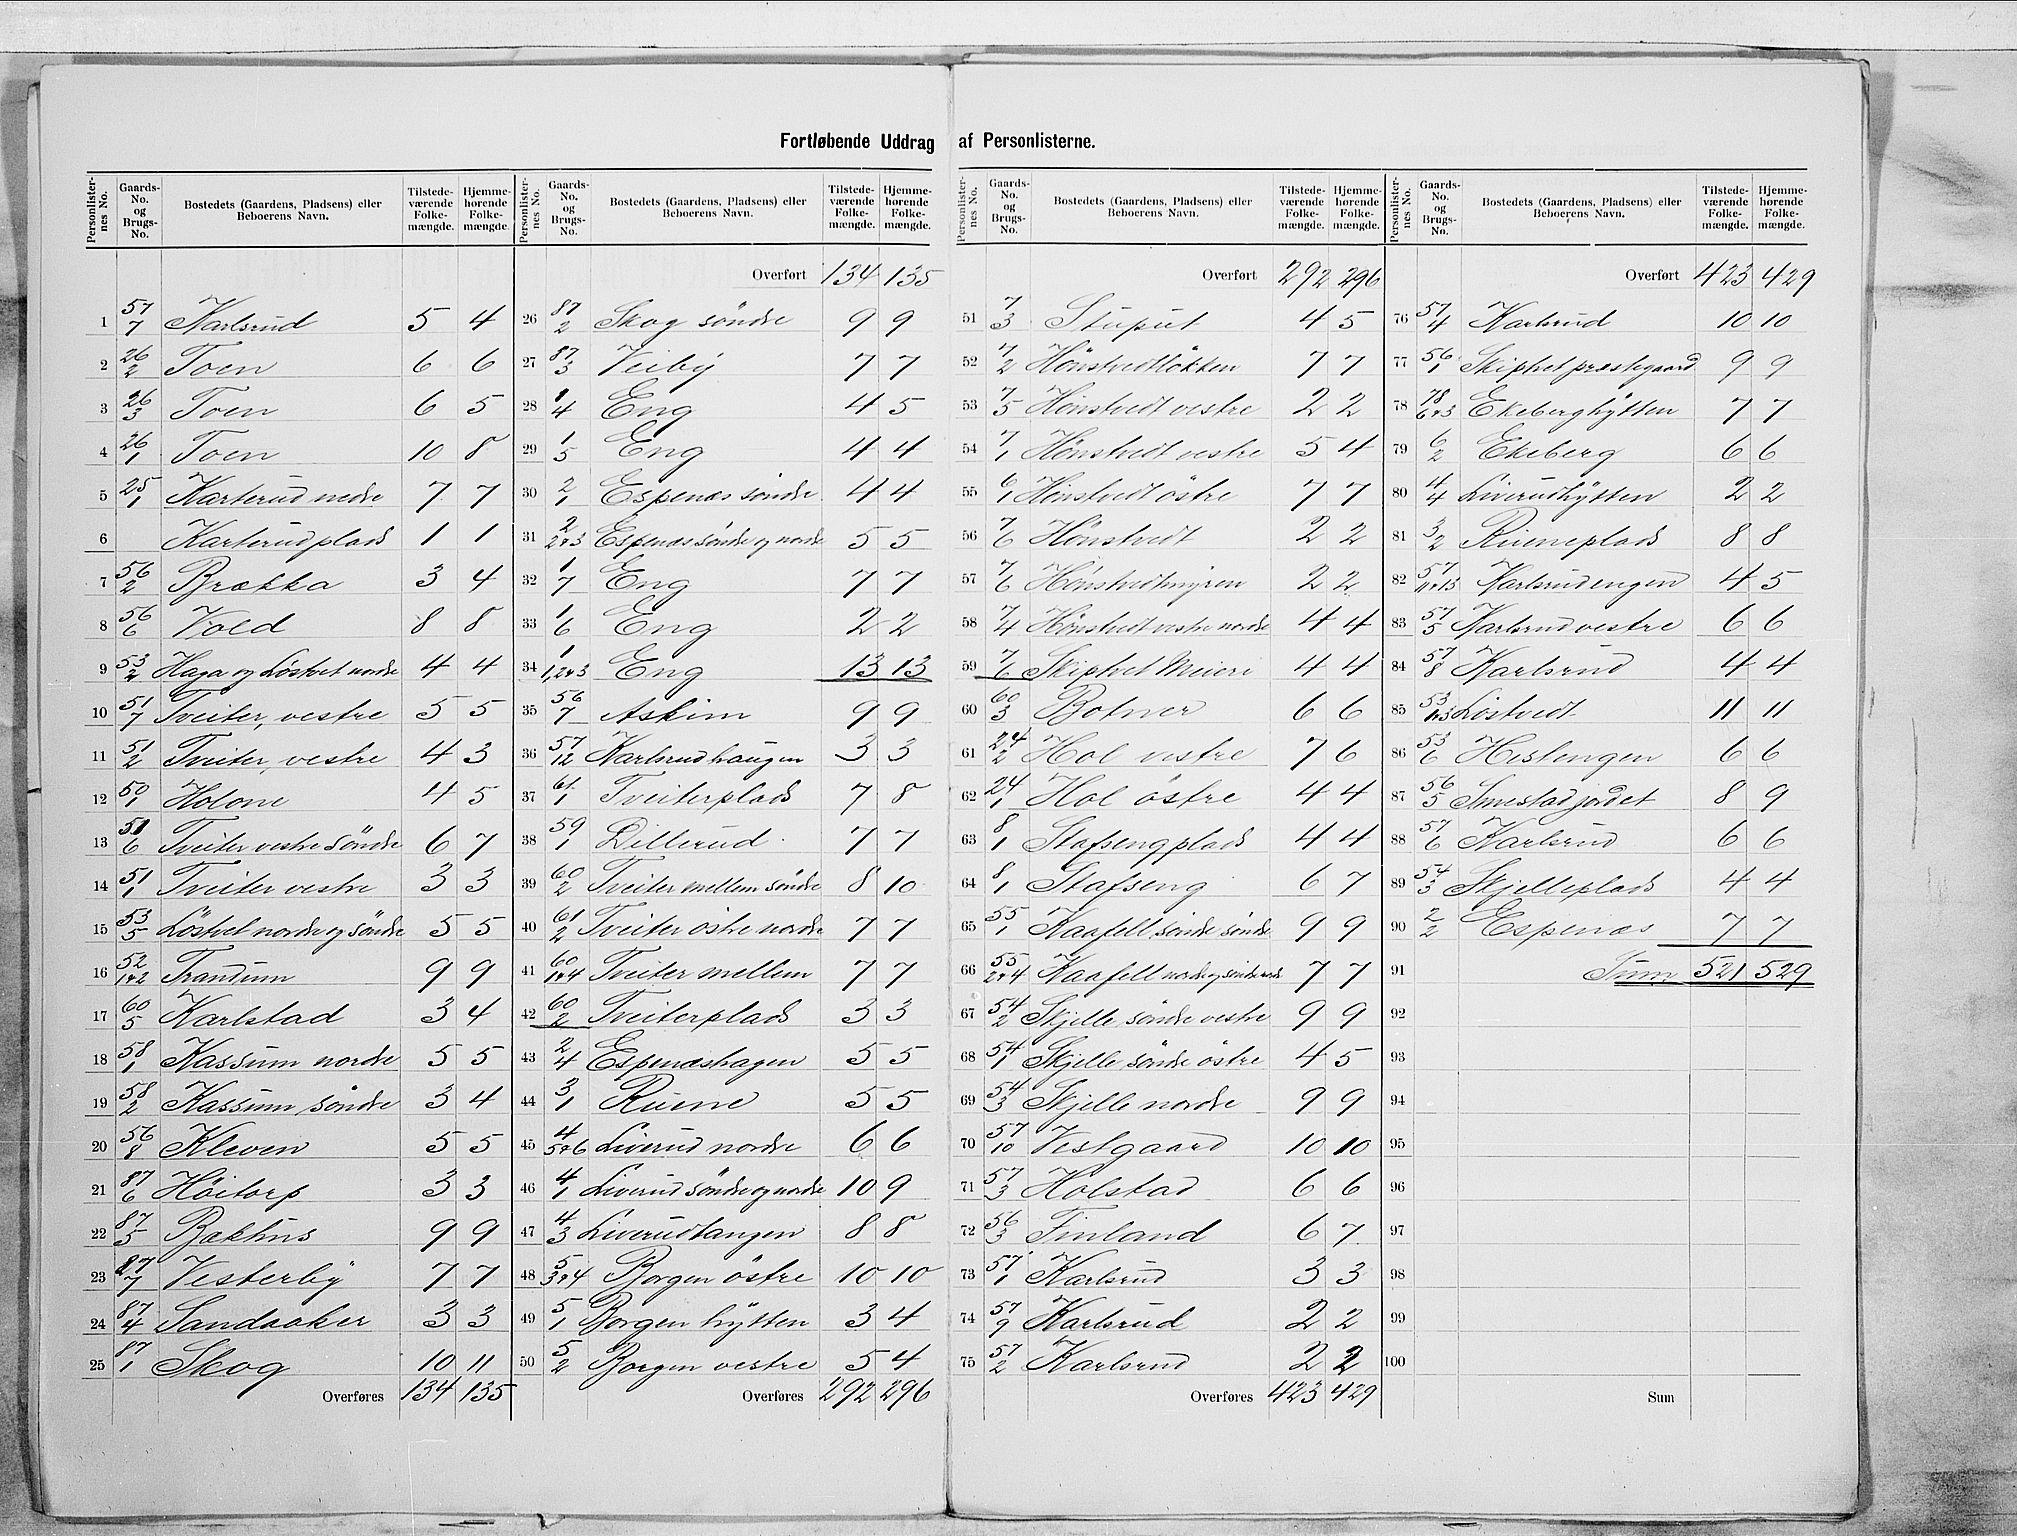 Fortløbende Uddrag af Personlisterne.
Personlister-nes No. Gaards-No. og Brugs-No. Bostedets (Gaardens, Pladsens) eller Beboerens Navn. Tilstede-værende Folke-mængde. Hjemme-hørende Folke-mængde.
1 57/7 Karlsrud 5 4
2 26/2 Toen 6 6
3 26/3 Toen 6 5
4 26/1 Toen 10 8
5 25/1 Karterud nedre 7 7
6 Karterudplads 1 1
7 56/2 Brækka 3 4
8 56/6 Vold 8 8
9 53/2 Haga og Löstvet nordre 4 4
10 51/7 Tveiter, vestre 5 5
11 51/2 Tveiter, vestre 4 3
12 50/1 Holone 4 5
13 51/6 Tveiter vestre söndre 6 7
14 51/1 Tveiter vestre 3 3
15 53/5 Löstvet nordre og söndre 5 5
16 52/1+2 Trandum 9 9
17 60/5 Karlstad 3 4
18 58/1 Kassum nordre 5 5
19 58/2 Kassum söndre 3 4
20 56/8 Kleven 5 5
21 87/6 Höitorp 3 3
22 87/5 Bækhus 9 9
23 87/7 Vesterby 7 7
24 87/4 Sandaaker 3 3
25 87/1 Skog 10 11
Overføres 134 135
Personlister-nes No. Gaards-No. og Brugs-No. Bostedets (Gaardens, Pladsens) eller Beboerens Navn. Tilstede-værende Folke-mængde. Hjemme-hørende Folke-mængde.
Overført 134 135
26 87/2 Skog söndre 9 9
27 87/3 Veiby 7 7
28 1/4 Eng 4 5
29 1/5 Eng 4 4
30 2/1 Espenæs söndre 4 4
31 2/2+3 Espenæs söndre og nordre 5 5
32 1/7 Eng 7 7
33 1/6 Eng 2 2
34 1/1,2+3 Eng 13 13
35 56/7 Askim 9 9
36 57/12 Karlsrudhaugen 3 3
37 61/1 Tveiterplads 7 8
38 59/1 Dillerud 7 7
39 60/2 Tveiter mellem söndre 8 10
40 61/2 Tveiter östre nordre 7 7
41 60/1+4 Tveiter mellem 7 7
42 60/2 Tveiterplads 3 3
43 2/4 Espenæshagen 5 5
44 3/1 Ruene 5 5
45 4/5+6 Liverud nordre 6 6
46 4/1 Liverud söndre og nordre 10 9
47 4/3 Liverudtangen 8 8
48 5/3+4 Borgen östre 10 10
49 5/1 Borgen hytten 3 4
50 5/2 Borgen vestre 5 4
Overføres 292 296
Personlister-nes No. Gaards-No. og Brugs-No. Bostedets (Gaardens, Pladsens) eller Beboerens Navn. Tilstede-værende Folke-mængde. Hjemme-hørende Folke-mængde.
Overført 292 296
51 7/3 Stuput 4 5
52 7/2 Hönstvedtlökken 7 7
53 7/5 Hönstvedt vestre 2 2
54 7/1 Hönstvedt vestre 5 4
55 6/1 Hönstvedt östre 7 7
56 7/6 Hönstvedt 2 2
57 7/6 Hönstvedtmyren 2 2
58 7/4 Hönstvedt vestre nordre 4 4
59 7/6 Skiptvet Meieri 4 4
60 60/3 Botner 6 6
61 24/2 Hol vestre 7 6
62 24/1 Hol östre 4 4
63 8/1 Stafsengplads 4 4
64 8/1 Stafseng 6 7
65 55/1 Kaafell söndre söndre 9 9
66 55/2+4 Kaafell nordre og söndre nordre 7 7
67 54/2 Skjelle, söndre vestre 9 9
68 54/1 Skjelle söndre östre 4 5
69 54/3 Skjelle nordre 9 9
70 57/10 Vestgaard 10 10
71 57/3 Holstad 6 6
72 56/3 Finland 6 7
73 57/1 Karlsrud 3 3
74 57/9 Karlsrud 2 2
75 57/2 Karlsrud 2 2
Overføres 423 429
Personlister-nes No. Gaards-No. og Brugs-No. Bostedets (Gaardens, Pladsens) eller Beboerens Navn. Tilstede-værende Folke-mængde. Hjemme-hørende Folke-mængde.
Overført 423 429
76 57/4 Karlsrud 10 10
77 56/1 Skiptvet præstegaard 9 9
78 78/6+3 Ekeberghytten 7 7
79 6/2 Ekeberg 6 6
80 4/4 Liverudhytten 2 2
81 3/2 Rueneplads 8 8
82 57/11+13 Karlsrudengen 4 5
83 57/5 Karlsrud vestre 6 6
84 57/8 Karlsrud 4 4
85 53/1+3 Löstvedt 11 11
86 53/6 Hestengen 6 6
87 56/5 Smestadjordet 8 9
88 57/6 Karlsrud 6 6
89 54/3 Skjelleplads 4 4
90 2/2 Espenæs 7 7
91 Sum 521 529
92
93
94
95
96
97
98
99
100
Sum